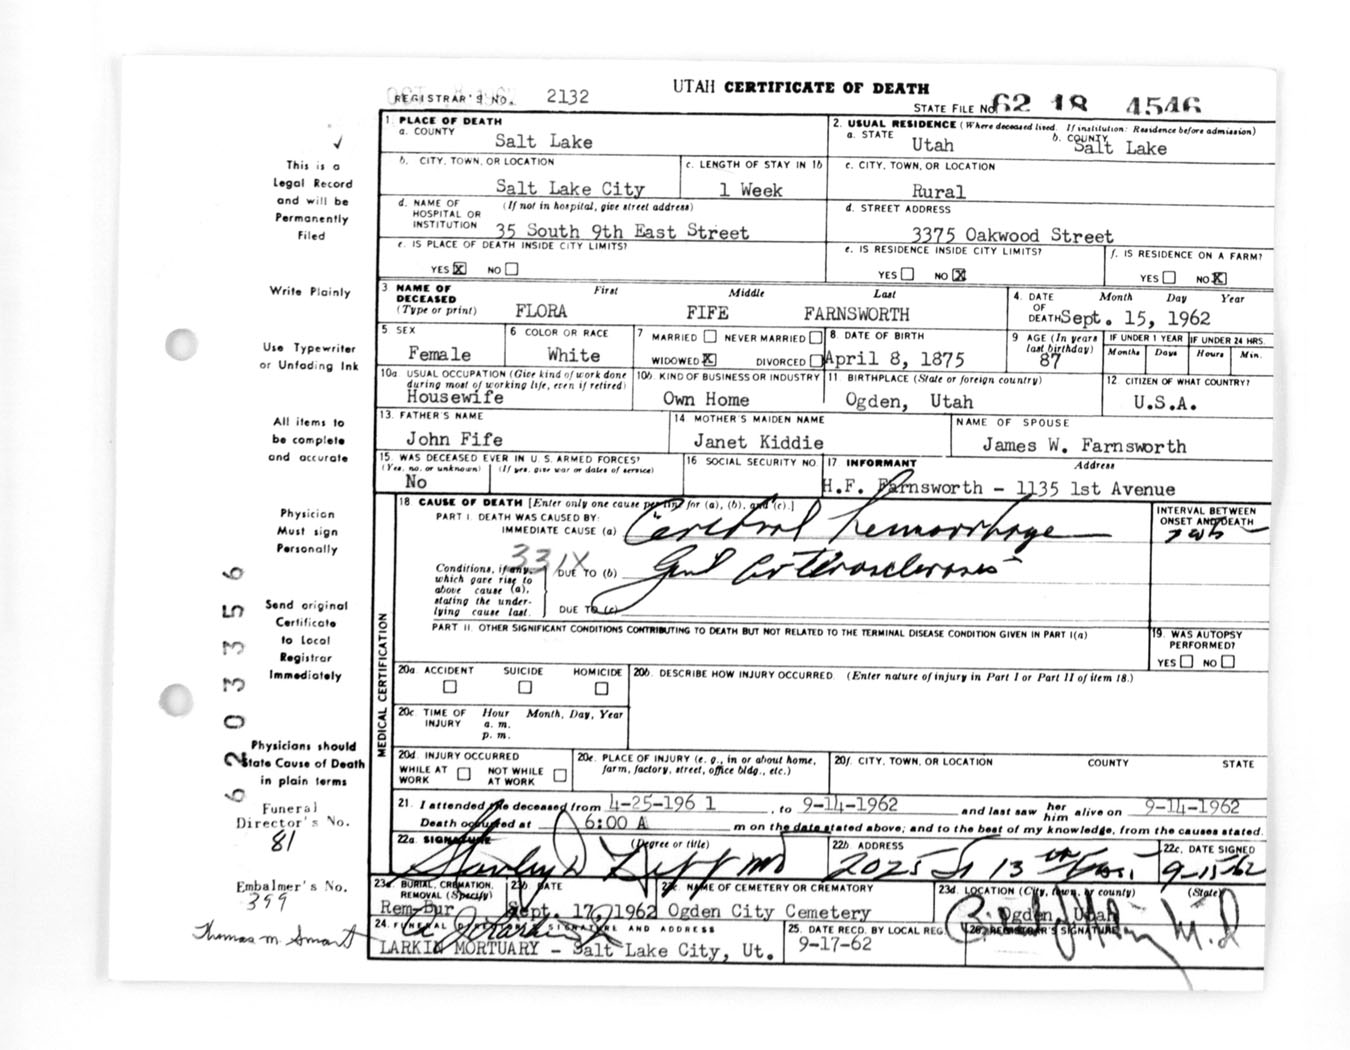 UTAH CERTIFICATE OF DEATH
REGISTRAR'S NO. 2132
STATE FILE NO. 62 18 4546
1. PLACE OF DEATH
a. COUNTY
Salt Lake
2. USUAL RESIDENCE (Where deceased lived. If institution: Residence before admission)
a. STATE
Utah
b. COUNTY
Salt Lake
b. CITY, TOWN, OR LOCATION
Salt Lake City
c. LENGTH OF STAY IN 1b
1 Week
c. CITY, TOWN, OR LOCATION
Rural
d. NAME OF HOSPITAL OR INSTITUTION (If not in hospital, give street address)
35 South 9th East Street
d. STREET ADDRESS
3375 Oakwood Street
e. IS PLACE OF DEATH INSIDE CITY LIMITS?
YES X NO
e. IS RESIDENCE INSIDE CITY LIMITS?
YES NO X
f. IS RESIDENCE ON A FARM?
YES NO X
3 NAME OF DECEASED (Type or print)
First Middle Last
FLORA FIFE FARNSWORTH
4. DATE OF DEATH Month Day Year
Sept. 15, 1962
5 SEX
Female
6 COLOR OR RACE
White
7 MARRIED NEVER MARRIED
WIDOWED X DIVORCED
8 DATE OF BIRTH
April 8, 1875
9 AGE (In years last birthday)
87
IF UNDER 1 YEAR
Months Days
IF UNDER 24 HRS.
Hours Min.
10a USUAL OCCUPATION (Give kind of work done during most of working life, even if retired)
Housewife
10b. KIND OF BUSINESS OR INDUSTRY
Own Home
11. BIRTHPLACE (State or foreign country)
Ogden, Utah
12 CITIZEN OF WHAT COUNTRY?
U.S.A.
13. FATHER'S NAME
John Fife
14 MOTHER'S MAIDEN NAME
Janet Kiddie
NAME OF SPOUSE
James W. Farnsworth
15. WAS DECEASED EVER IN U.S. ARMED FORCES?
(Yes, no, or unknown) (If yes, give war or dates of service)
No
16 SOCIAL SECURITY NO
17 INFORMANT Address
H.F. Farnsworth - 1135 1st Avenue
18. CAUSE OF DEATH [Enter only one cause per line for (a), (b), and (c).]
PART I. DEATH WAS CAUSED BY:
IMMEDIATE CAUSE (a) Cerebral hemorrhage
INTERVAL BETWEEN ONSET AND DEATH
331X
Conditions, if any, which gave rise to above cause (a), stating the underlying cause last.
DUE TO (b) Genl arteriosclerosis
DUE TO (c)
PART II. OTHER SIGNIFICANT CONDITIONS CONTRIBUTING TO DEATH BUT NOT RELATED TO THE TERMINAL DISEASE CONDITION GIVEN IN PART I(a)
19. WAS AUTOPSY PERFORMED?
YES NO
MEDICAL CERTIFICATION
20a. ACCIDENT SUICIDE HOMICIDE
20b. DESCRIBE HOW INJURY OCCURRED. (Enter nature of injury in Part I or Part II of item 18.)
20c. TIME OF INJURY Hour Month, Day, Year
a. m.
p. m.
20d. INJURY OCCURRED
WHILE AT WORK NOT WHILE AT WORK
20e. PLACE OF INJURY (e. g., in or about home, farm, factory, street, office bldg., etc.)
20f. CITY, TOWN, OR LOCATION COUNTY STATE
21. I attended the deceased from 4-25-1961, to 9-14-1962 and last saw her him alive on 9-14-1962
Death occurred at 6:00 A m on the date stated above; and to the best of my knowledge, from the causes stated.
22a. SIGNATURE (Degree or title)
MD
22b. ADDRESS
2025 So 13th East
22c. DATE SIGNED
9-15-62
23a. BURIAL, CREMATION, REMOVAL (Specify)
Rem-Bur
23b. DATE
Sept. 17, 1962
23c. NAME OF CEMETERY OR CREMATORY
Ogden City Cemetery
23d. LOCATION (City, town, or county) (State)
Ogden, Utah
24. FUNERAL DIRECTOR'S SIGNATURE AND ADDRESS
LARKIN MORTUARY - Salt Lake City, Ut.
25. DATE RECD. BY LOCAL REG.
9-17-62
26. REGISTRAR'S SIGNATURE
M.D
This is a
Legal Record
and will be
Permanently
Filed
Write Plainly
Use Typewriter
or Unfading Ink
All items to
be complete
and accurate
Physician
Must sign
Personally
Send original
Certificate
to Local
Registrar
Immediately
Physicians should
State Cause of Death
in plain terms
Funeral
Director's No.
81
Embalmer's No.
399
Thomas M. Smart
6203356